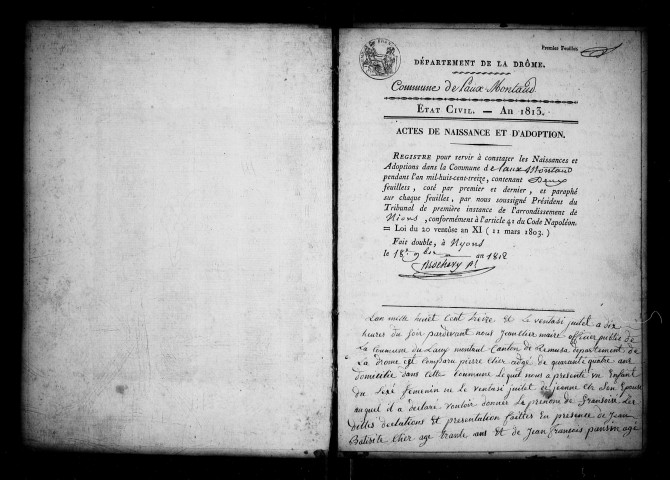 Premier Feuillet
DÉPARTEMENT DE LA DRÔME.
Commune de Laux Montaud
ÉTAT CIVIL. — AN 1813.
ACTES DE NAISSANCE ET D'ADOPTION.
REGISTRE pour servir à constater les Naissances et
Adoptions dans la Commune de Laux Montaud
pendant l'an mil-huit-cent-treize, contenant Deux
feuillets, coté par premier et dernier, et paraphé
sur chaque feuillet, par nous soussigné Présidens du
Tribunal de première instance de l'arrondissement de
Nions, conformément à l'article 41 du Code Napoléon.
= Loi du 20 ventôse an XI (11 mars 1803.)
Fait double, à Nyons
le 18 9bre an 1812
Lan mille huit Cent treize et le ventasi juilet a six
heures du soir pardevant nous jean clier maire officier public de
La Commune du Laux montaud Canton de Remusa departement de
La drome est Comparu pierre clier adgé de quarante quatre ans
domicilié dans Cette Commune Lequel nous a presenté un Enfant
du Sexé femenin né le ventasi juilet de jeanne Son Epouse
auquel il a declaré vouloir donner Le prenom de fransoise Les
dittes declations et presentation faittes En presence de Jean
Batiste Clier age trante ans et de Jean François age